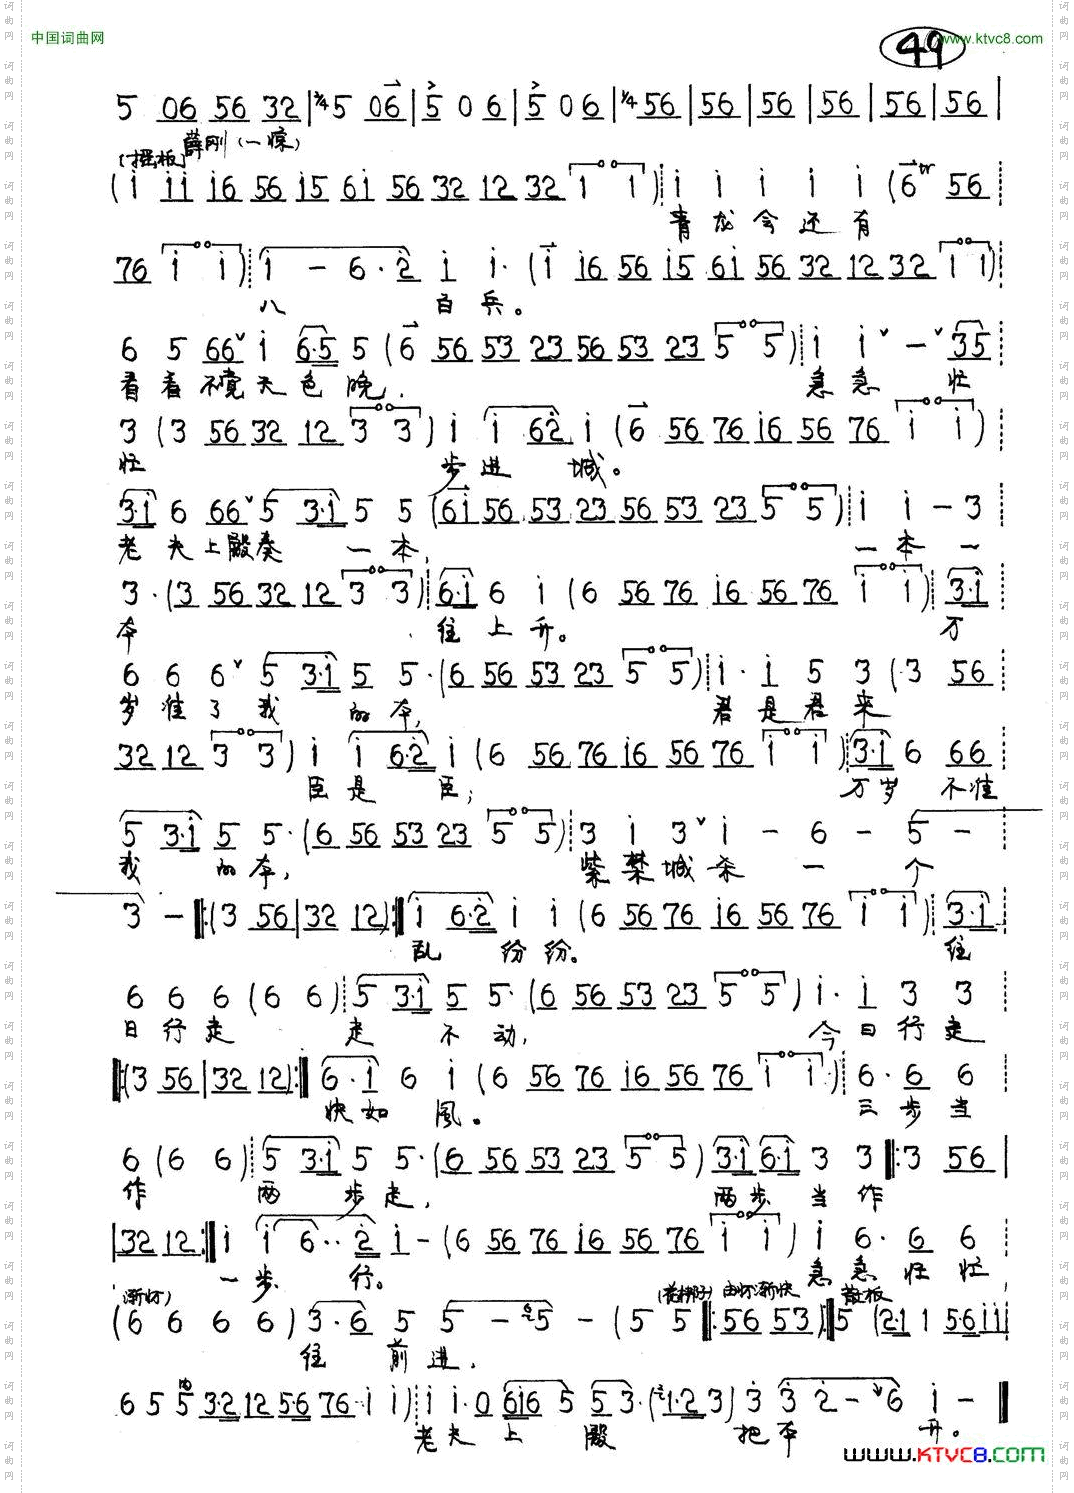 中国词曲网
49
www.ktvc8.com
5 06 56 32 | 2/4 5 06 | 5 0 6 | 5 0 6 | 1/4 56 | 56 | 56 | 56 | 56 | 56 |
[摇板] 薛刚(一惊)
(i ii i6 56 i5 6i 56 32 12 32 i i) i i i i i (6 56
青龙会还有
76 i i) i - 6·2 i i· (i i6 56 i5 6i 56 32 12 32 i i)
八 百兵。
6 5 66 i 6·5 5 (6 56 53 23 56 53 23 5 5) i i - 35
看看不觉天色晚, 急急 忙
3 (3 56 32 12 3 3) i i 62 i (6 56 76 i6 56 76 i i)
忙 步进 城。
3·i 6 66 5 3·i 5 5 (6i 56 53 23 56 53 23 5 5) i i - 3
老夫上殿奏 一本, 一本 一
3· (3 56 32 12 3 3) 6·i 6 i (6 56 76 i6 56 76 i i) 3·i
本 往上升。 万
6 6 6 5 3·i 5 5· (6 56 53 23 5 5) i· i 5 3 (3 56
岁准了我 的本, 君是君来
32 12 3 3) i i 6·2 i (6 56 76 i6 56 76 i i) 3·i 6 66
臣是 臣; 万岁 不准
5 3·i 5 5· (6 56 53 23 5 5) 3 i 3 i - 6 - 5 -
我 的本, 紫禁城杀 一 个
3 - ‖:(3 56 | 32 12):‖ i 6·2 i i (6 56 76 i6 56 76 i i) 3·i
乱 纷纷。 往
6 6 6 (6 6) 5 3·i 5 5· (6 56 53 23 5 5) i· i 3 3
日行走 走 不动, 今日行走
‖:(3 56 | 32 12):‖ 6·i 6 i (6 56 76 i6 56 76 i i) 6· 6 6
快如 風。 三步当
6 (6 6) 5 3·i 5 5· (6 56 53 23 5 5) 3·i 6·i 3 3 ‖: 3 56 |
作 两 步走, 两步 当作
| 32 12 :‖ i i 6·· 2 i - (6 56 76 i6 56 76 i i) i 6· 6 6
一步 行。 急急忙忙
(渐快) (花梆子) 由怀渐快 散板
(6 6 6 6) 3·6 5 5 - 5 - (5 5 ‖: 56 53 :‖ 5 (2·1 1 5·6 ii
往 前进,
6 5 5 3·2 12 5·6 76 · i i) i i·0 6i6 5 5 3· (1·2 3) 3 3 2 - 6 i - ‖
老夫上 殿 把本 升。
www.KTVC8.com